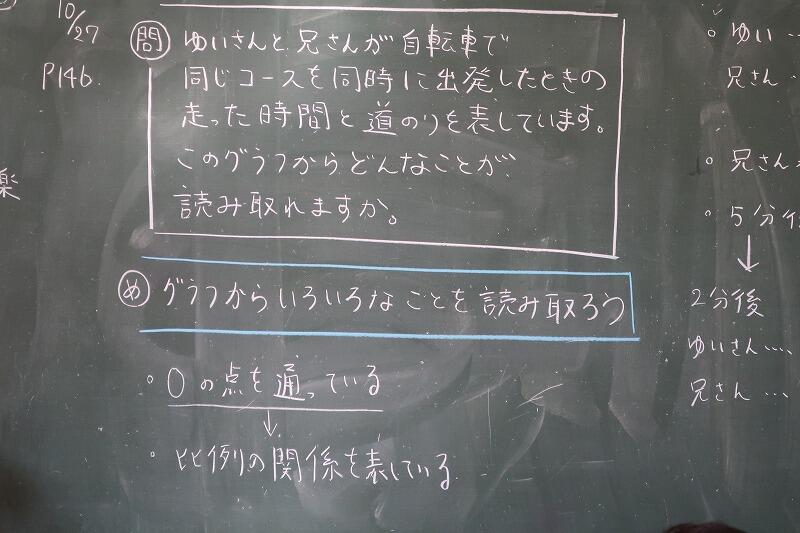 10/27
P146.
問 ゆいさんと兄さんが自転車で
同じコースを同時に出発したときの
走った時間と道のりを表しています。
このグラフからどんなことが、
読み取れますか。
め グラフからいろいろなことを読み取ろう
・0の点を通っている
↓
・比例の関係を表している
楽
・ゆい…
兄さん…
・兄さんが
・5分後
↓
2分後
ゆいさん….
兄さん…